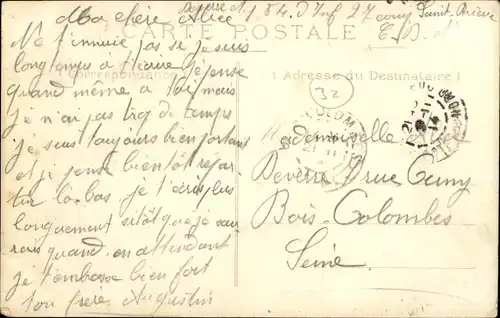 Ma chère Alice
Ne t'ennuie pas si je suis
longtemps à t'écrire je pense
quand même a toi mais
je n'ai pas trop de temps
je suis toujours bien portant
et je pense bientôt repar
tir là-bas je t'écris plus
longuement sitôt que je sau
rais quand. en attendant
je t'embrasse bien fort
ton frère Augustin
84. d'Inf 27 comp Saint
CARTE POSTALE
Correspondance
Adresse du Destinataire
32
COLOM
Mademoiselle
Deverre rue
Bois-Colombes
Seine